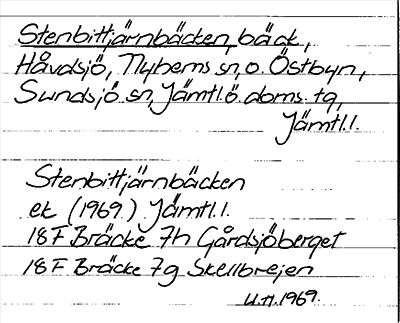 Stenbittjärnbäcken, bäck,
Håvdsjö, Nyhems sn, o. Östbyn,
Sundsjö sn, Jämtl. ö. doms. tg,
Jämtl. l.
Stenbittjärnbäcken
ek (1969) Jämtl. l.
18F Bräcke 7h Gårdsjöberget
18F Bräcke 7g Skellbrejen
U.H. 1969.